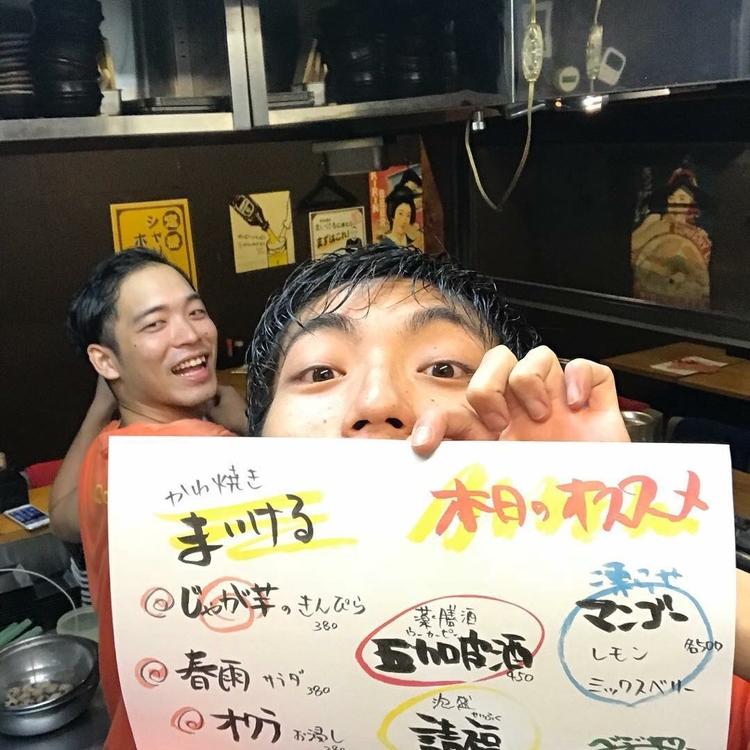 かわ焼き
まいける
本日のオススメ
じゃが芋のきんぴら
380
春雨サラダ
380
オクラお浸し
380
薬膳酒
ウーカーピー
五加皮酒
450
泡盛
せいふく
請福
凍らせ
マンゴー
レモン
各500
ミックスベリー
まずはこれ!